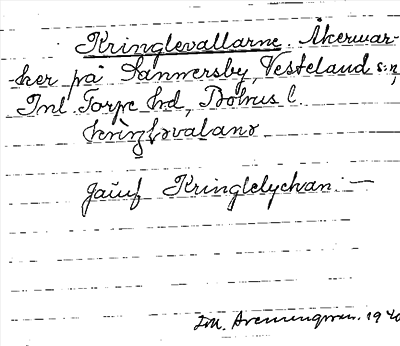 Kringlevallarne. Åkermar-
-ker på Sannersby, Vesteland s:n,
Inl Torpe hd, Bohus l.
kriŋləvalanə
Jämf Kringlelyckan. —
IM. 1940